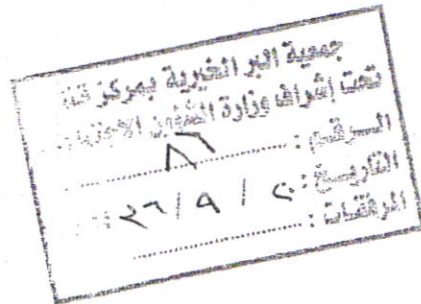 جمعية البر الخيرية بمركز
تحت إشراف وزارة الشؤون الاجتماعية
الرقم : ٨٦
التاريخ : ٢٠ / ٩ / ٢٦
المرفقات :